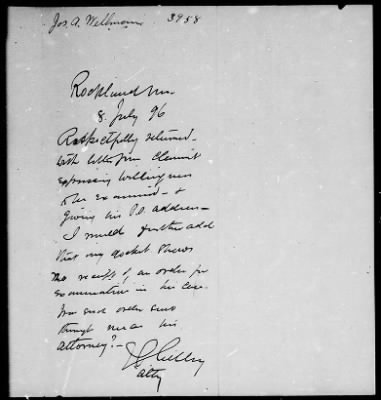 Jos. A. Wellman 3958
Rockland Me
8 July 96
Respectfully returned
with letter from Claimant
expressing willingness
to be examined — &
giving his P.O. address —
I would further add
that my docket shows
the receipt of an order for
examination in his case.
such order sent
through me as his
attorney? —
Atty